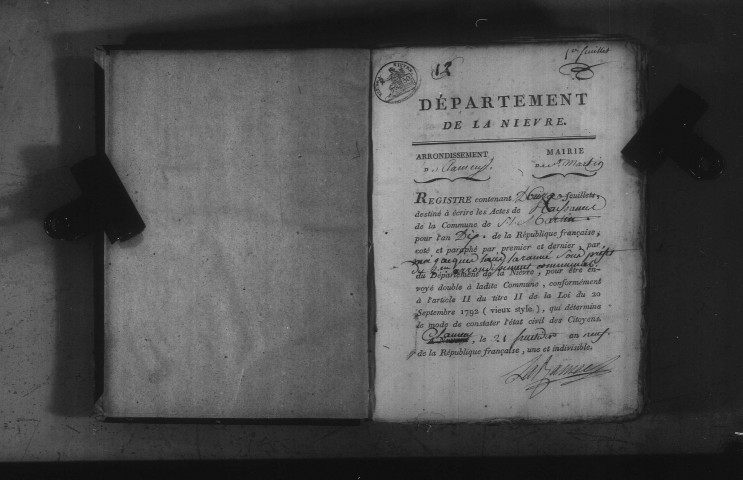 12
1er feuillet
DÉPARTEMENT
DE LA NIEVRE.
ARRONDISSEMENT
de Clamecy
MAIRIE
de St Martin
REGISTRE contenant Douze feuillets,
destiné à écrire les Actes de Naissance
de la Commune de St Martin
pour l'an Dix de la République française,
coté et paraphé par premier et dernier par
moi sous préfet
du arrondissement communal
du Département de la Nievre, pour être en-
voyé double à ladite Commune, conformément
à l'article II du titre II de la Loi du 20
Septembre 1792 (vieux style), qui détermine
le mode de constater l'état civil des Citoyens.
Clamecy, le 21 fructidor an neuf
de la République française, une et indivisible.